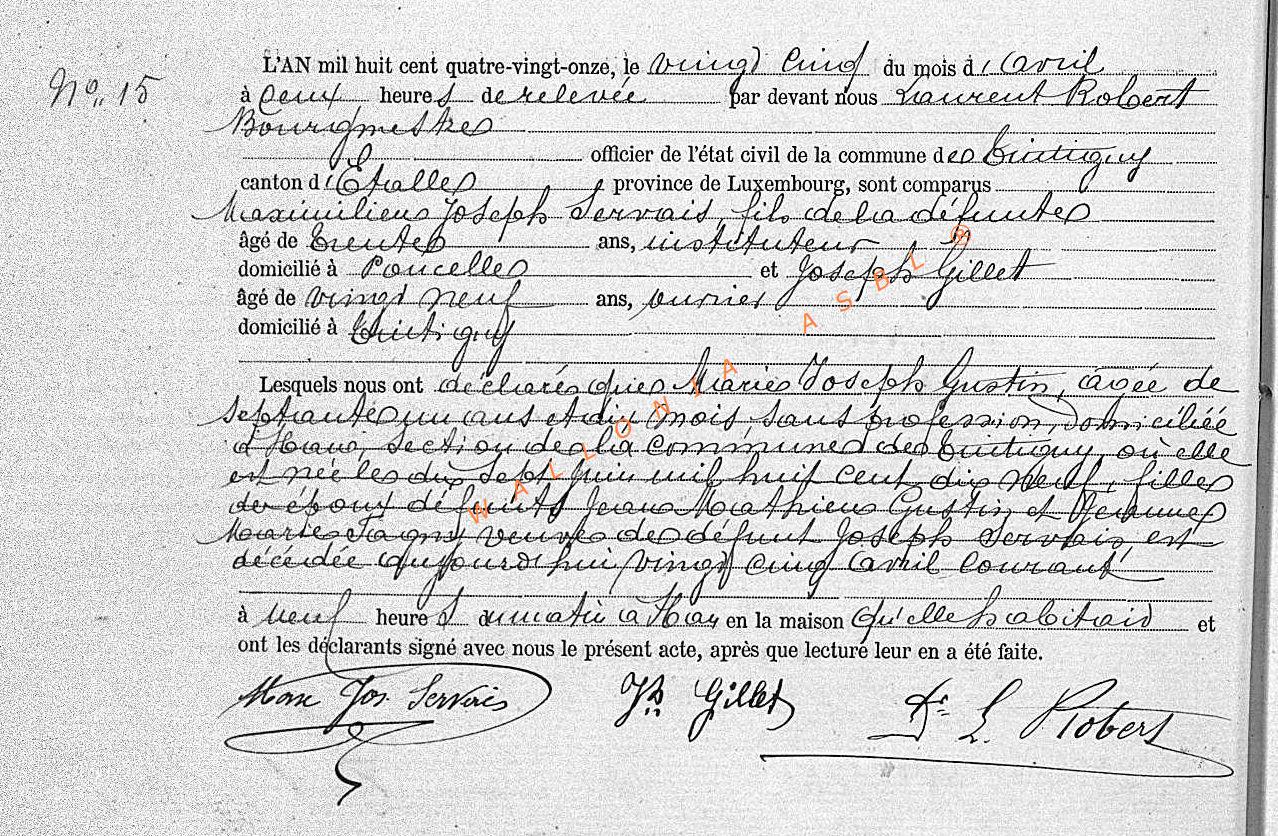 No. 15
L'AN mil huit cent quatre-vingt-onze, le vingt cinq du mois d'avril
à deux heures de relevée par devant nous Laurent Robert
Bourgmestre
officier de l'état civil de la commune de Tintigny
canton d'Etalle province de Luxembourg, sont comparus
Maximilien Joseph Servais, fils de la défunte
âgé de trente ans, instituteur
domicilié à Poncelle et Joseph Gillet
âgé de vingt neuf ans, ouvrier
domicilié à Tintigny
Lesquels nous ont déclaré que Marie Joseph Gustin, agée de
septante un ans et dix mois, sans profession, domiciliée
à Han, section de la commune de Tintigny, où elle
est née le dix sept juin mil huit cent dix neuf, fille
de époux défunts Jean Mathieu Gustin et Jeanne
Marie veuve de défunt Joseph Servais, est
décédée aujourd'hui vingt cinq avril courant
à neuf heures du matin à Han en la maison qu'elle habitait et
ont les déclarants signé avec nous le présent acte, après que lecture leur en a été faite.
Max Jos. Servais Jh Gillet Dr L. Robert
WALLONIA ASBL ®